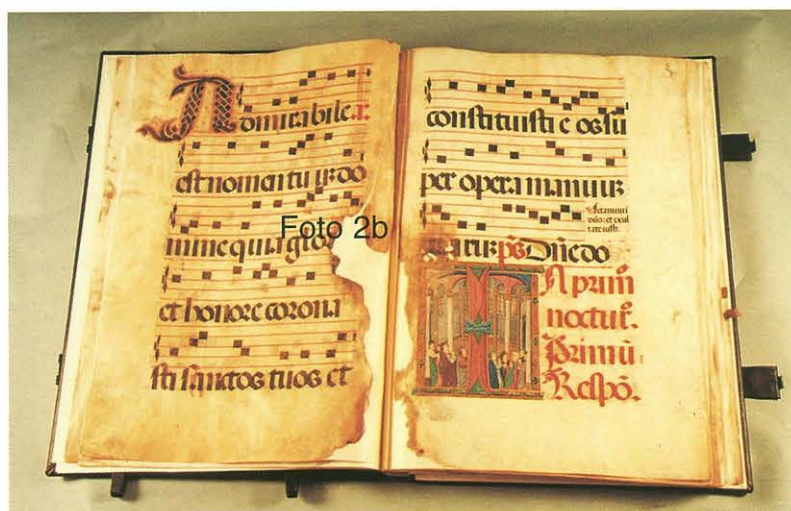 Admirabile.r.
est nomen tuuz do
mine quia glor
et honore corona
sti sanctos tuos et
Foto 2b
constituisti e os sū
per opera manuuz
tuaruz ps Dn̄e do
In prim̄
noctur̄.
Primū.
Respō.